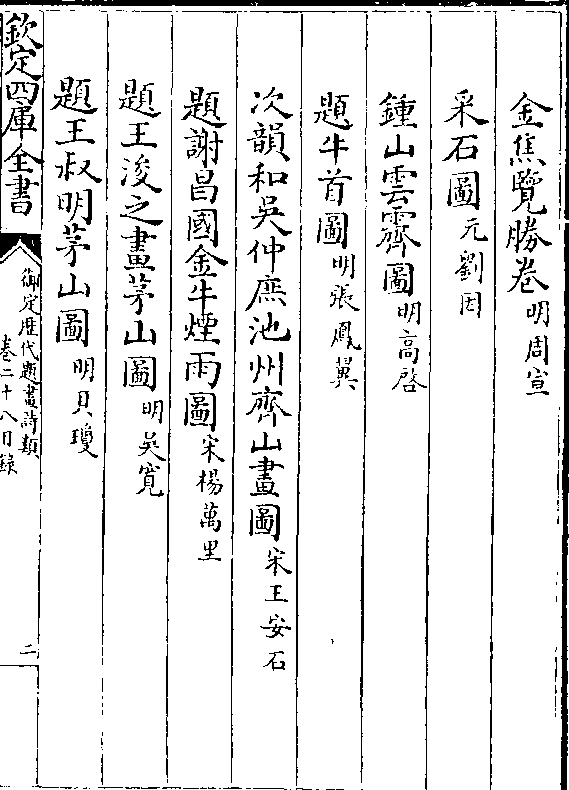 金焦覽勝卷明周宣
采石圖元劉因
鍾山雲霽圖明高啓
題牛首圖明張鳳翼
次韻和吳仲庶池州齊山畫圖宋王安石
題謝昌國金牛煙雨圖宋楊萬里
題王浚之畫茅山圖明吳寬
題王叔明茅山圖明貝瓊
欽定四庫全書
御定歷代題畫詩類
卷二十八目錄
二